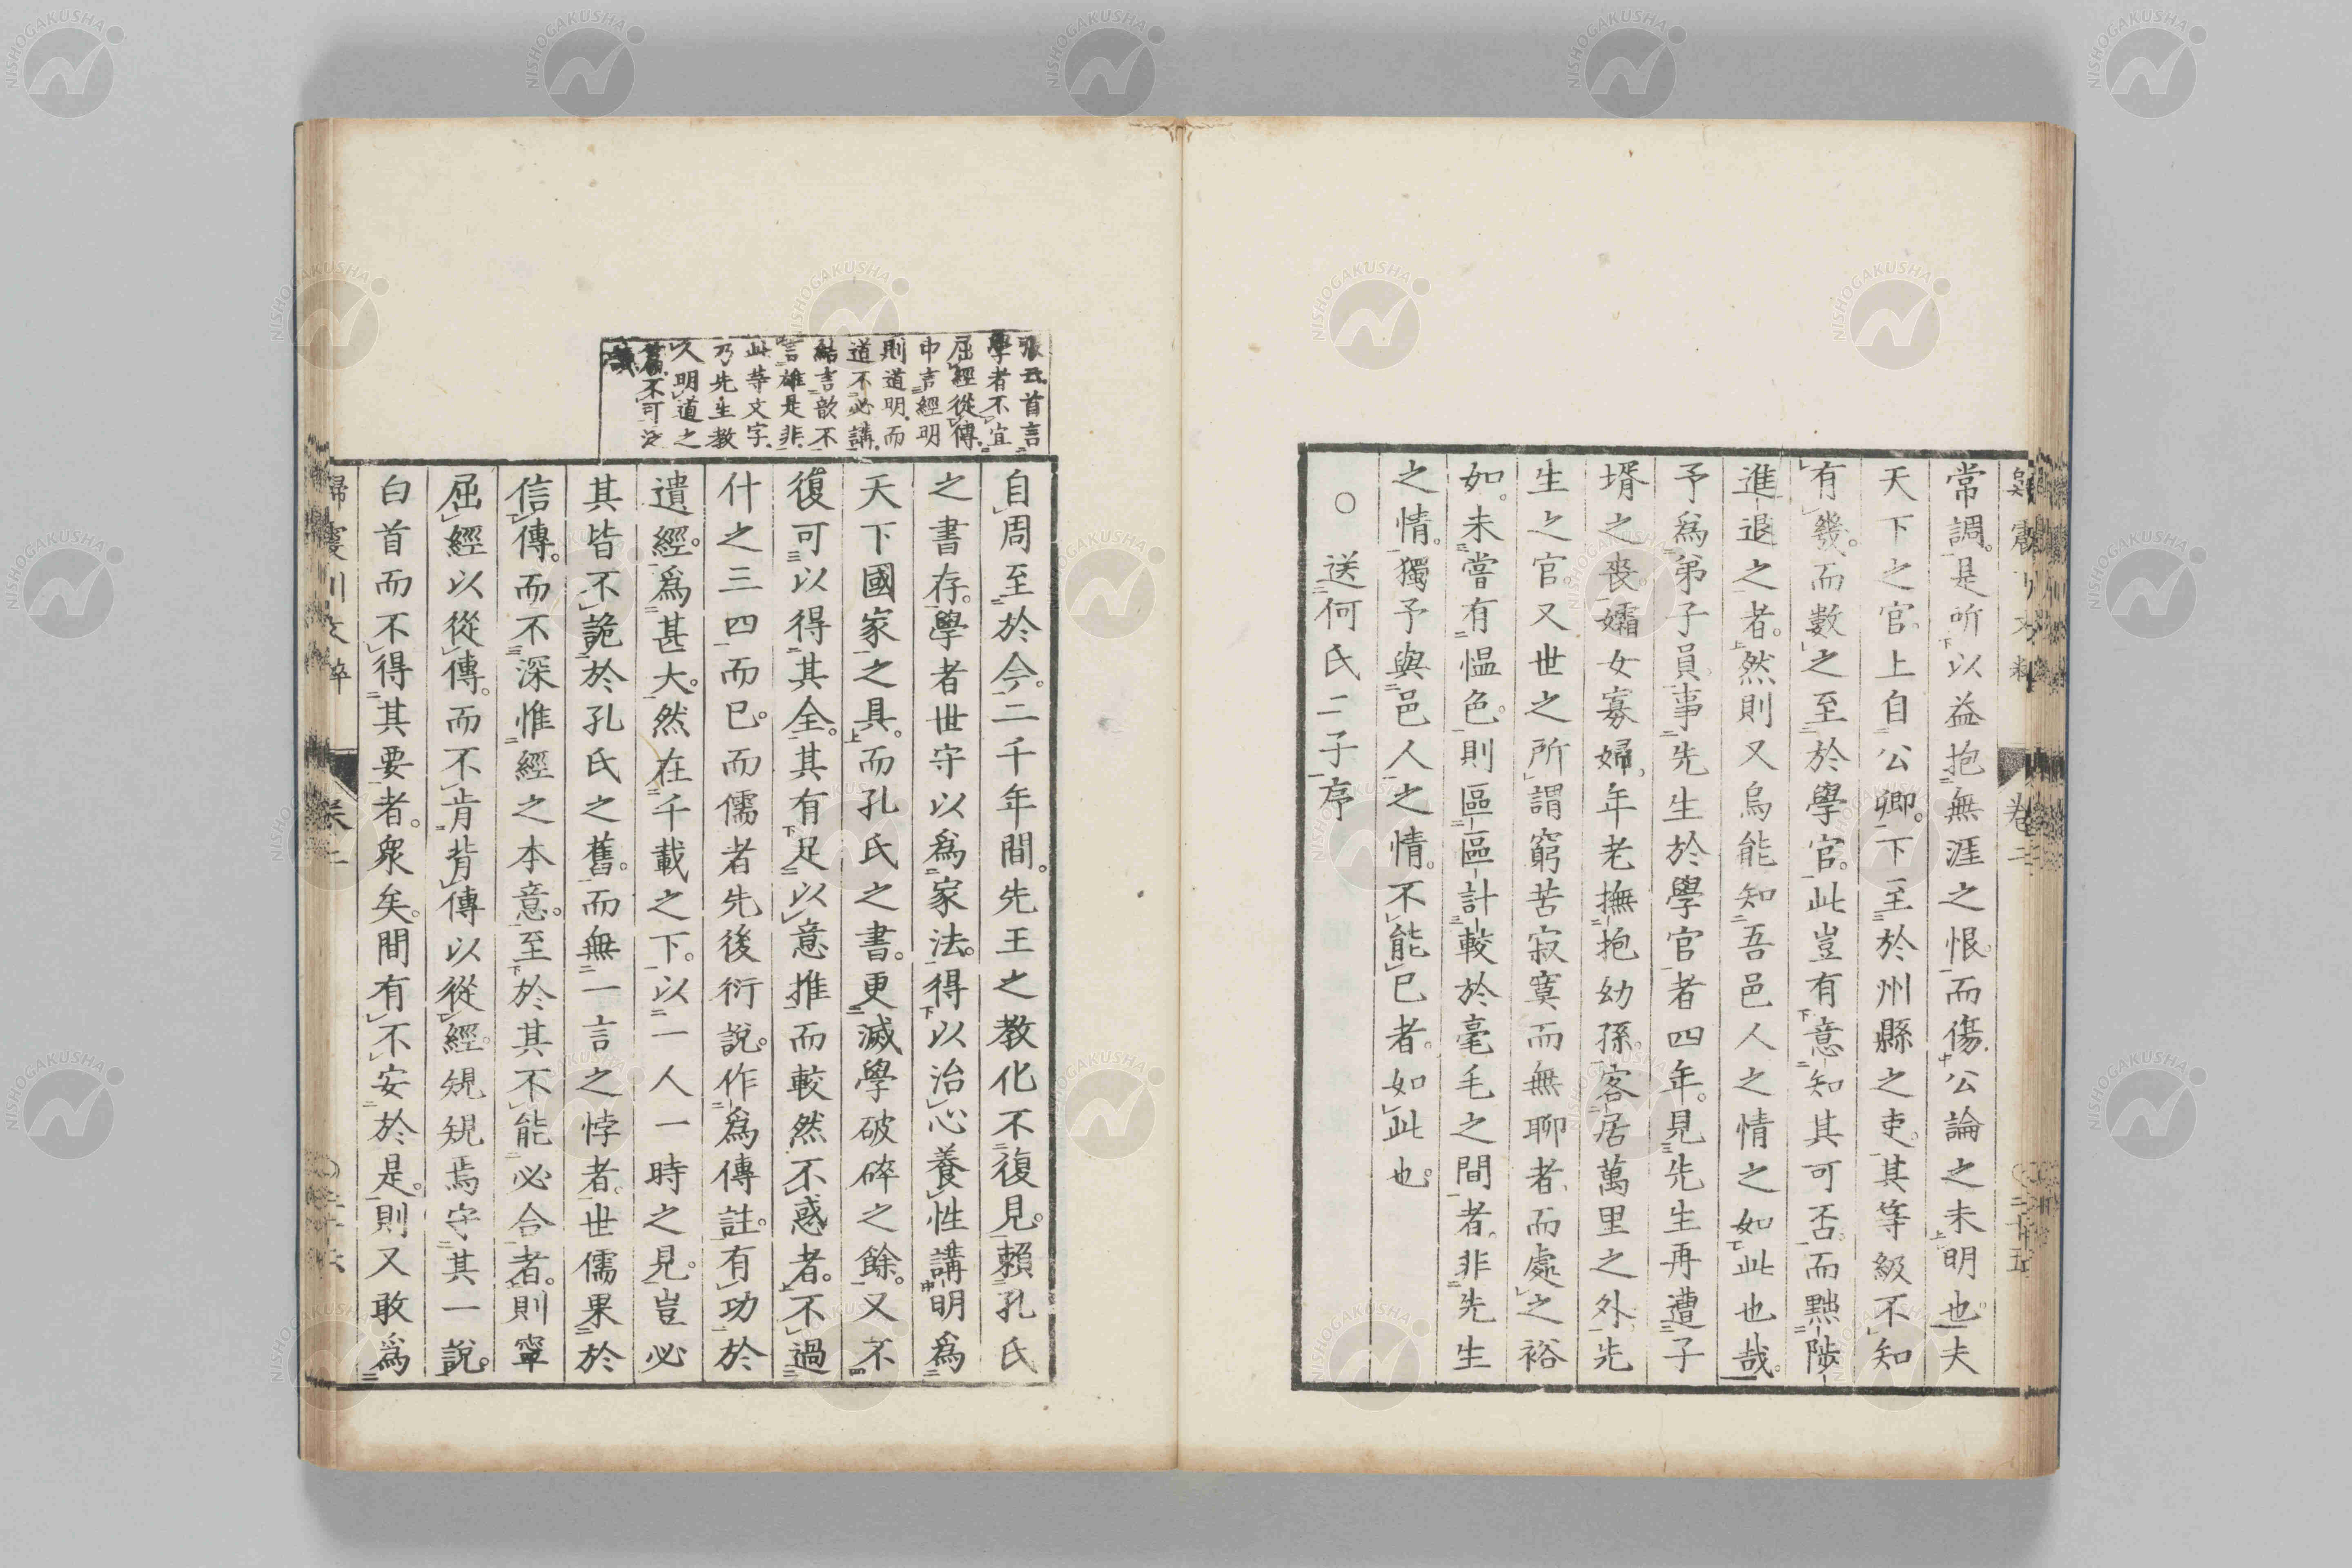 歸震川文粹 卷二 二十五
常調。是所以益抱無涯之恨。而傷公論之未明也。夫
天下之官。上自公卿。下至於州縣之吏。其等級不知
有幾。而數之至於學官。此豈有意知其可否。而黜陟
進退之者。然則又烏能知吾邑人之情之如此也哉。
予爲弟子員。事先生於學官者四年。見先生再遭子
壻之喪。孀女寡婦。年老撫抱幼孫。客居萬里之外。先
生之官。又世之所謂窮苦寂寞而無聊者。而處之裕
如。未嘗有慍色。則區區計較於毫毛之間者。非先生
之情。獨予與邑人之情。不能已者。如此也。
○送何氏二子序
張云首言
學者不宜
屈經從傳。
中言經明
則道明。而
道不必講。
結言歆不
言雄是非。
此等文字。
乃先生教
人明道之
篇。不可泛
讀
自周至於今。二千年間。先王之教化不復見。賴孔氏
之書存。學者世守以爲家法。得以治心養性講明爲
天下國家之具。而孔氏之書。更滅學破碎之餘。又不
復可以得其全。其有足以意推而較然不惑者。不過
什之三四而已。而儒者先後衍說。作爲傳註。有功於
遺經。爲甚大。然在千載之下。以一人一時之見。豈必
其皆不詭於孔氏之舊。而無一言之悖者。世儒果於
信傳。而不深惟經之本意。至於其不能必合者。則寧
屈經以從傳。而不肯背傳以從經。規規焉守其一說。
白首而不得其要者。衆矣。間有不安於是。則又敢爲
歸震川文粹 卷二 二十六